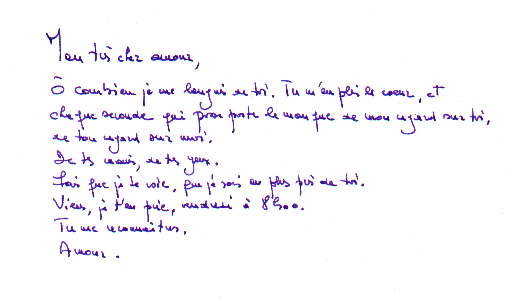 Mon très cher amour,
Ô combien je me languis de toi. Tu m'emplis le coeur, et
chaque seconde qui passe porte le manque de mon regard sur toi,
de ton regard sur moi.
De tes mains, de tes yeux.
Fais que je te voie, que je sois au plus près de toi.
Viens, je t'en prie, vendredi à 8h00.
Tu me reconnaitras.
Amour.